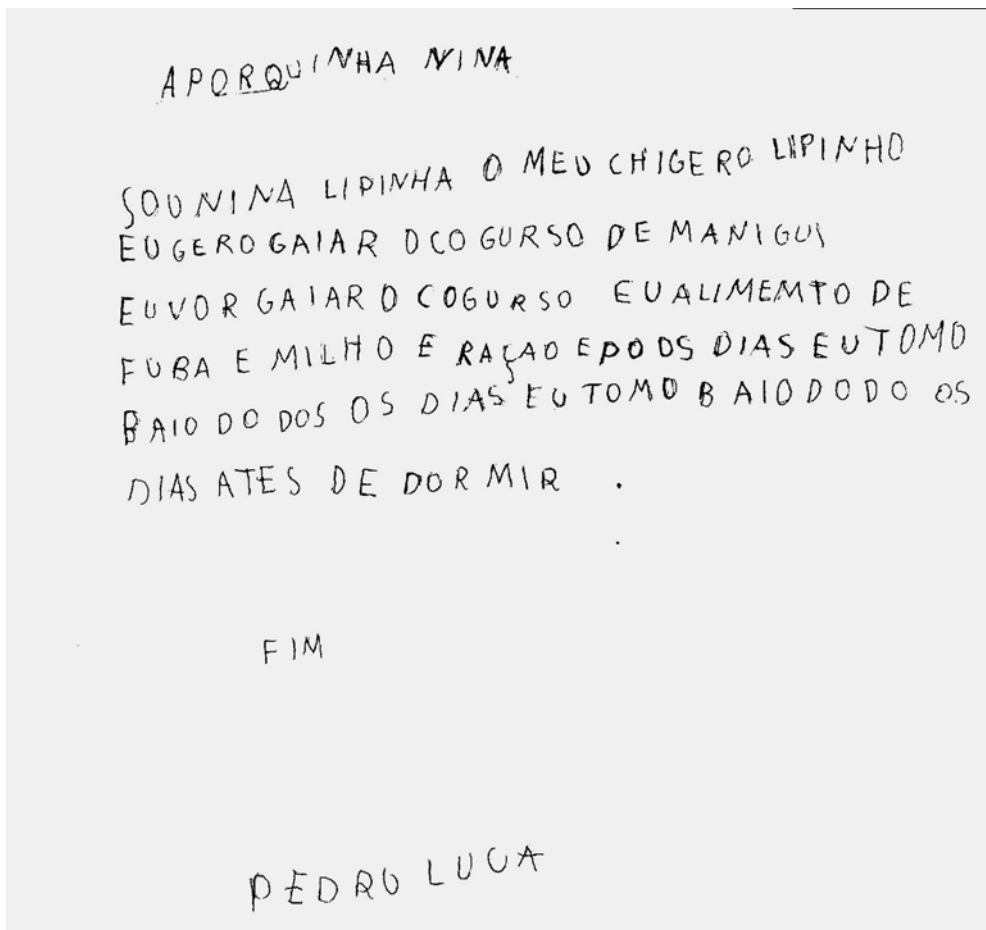 APORQUINHA NINA
SOU NINA LIPINHA O MEU CHIGERO LIPINHO
EU GERO GAIAR O COGURSO DE MANIGUI
EUVOR GAIAR O COGURSO EUALIMEMTO DE
FUBA E MILHO E RAÇAO EPOOS DIAS EUTOMO
BAIO DO DOS OS DIAS EU TOMO BAIO DODO OS
DIAS ATES DE DORMIR .
.
FIM
PEDRO LUCA